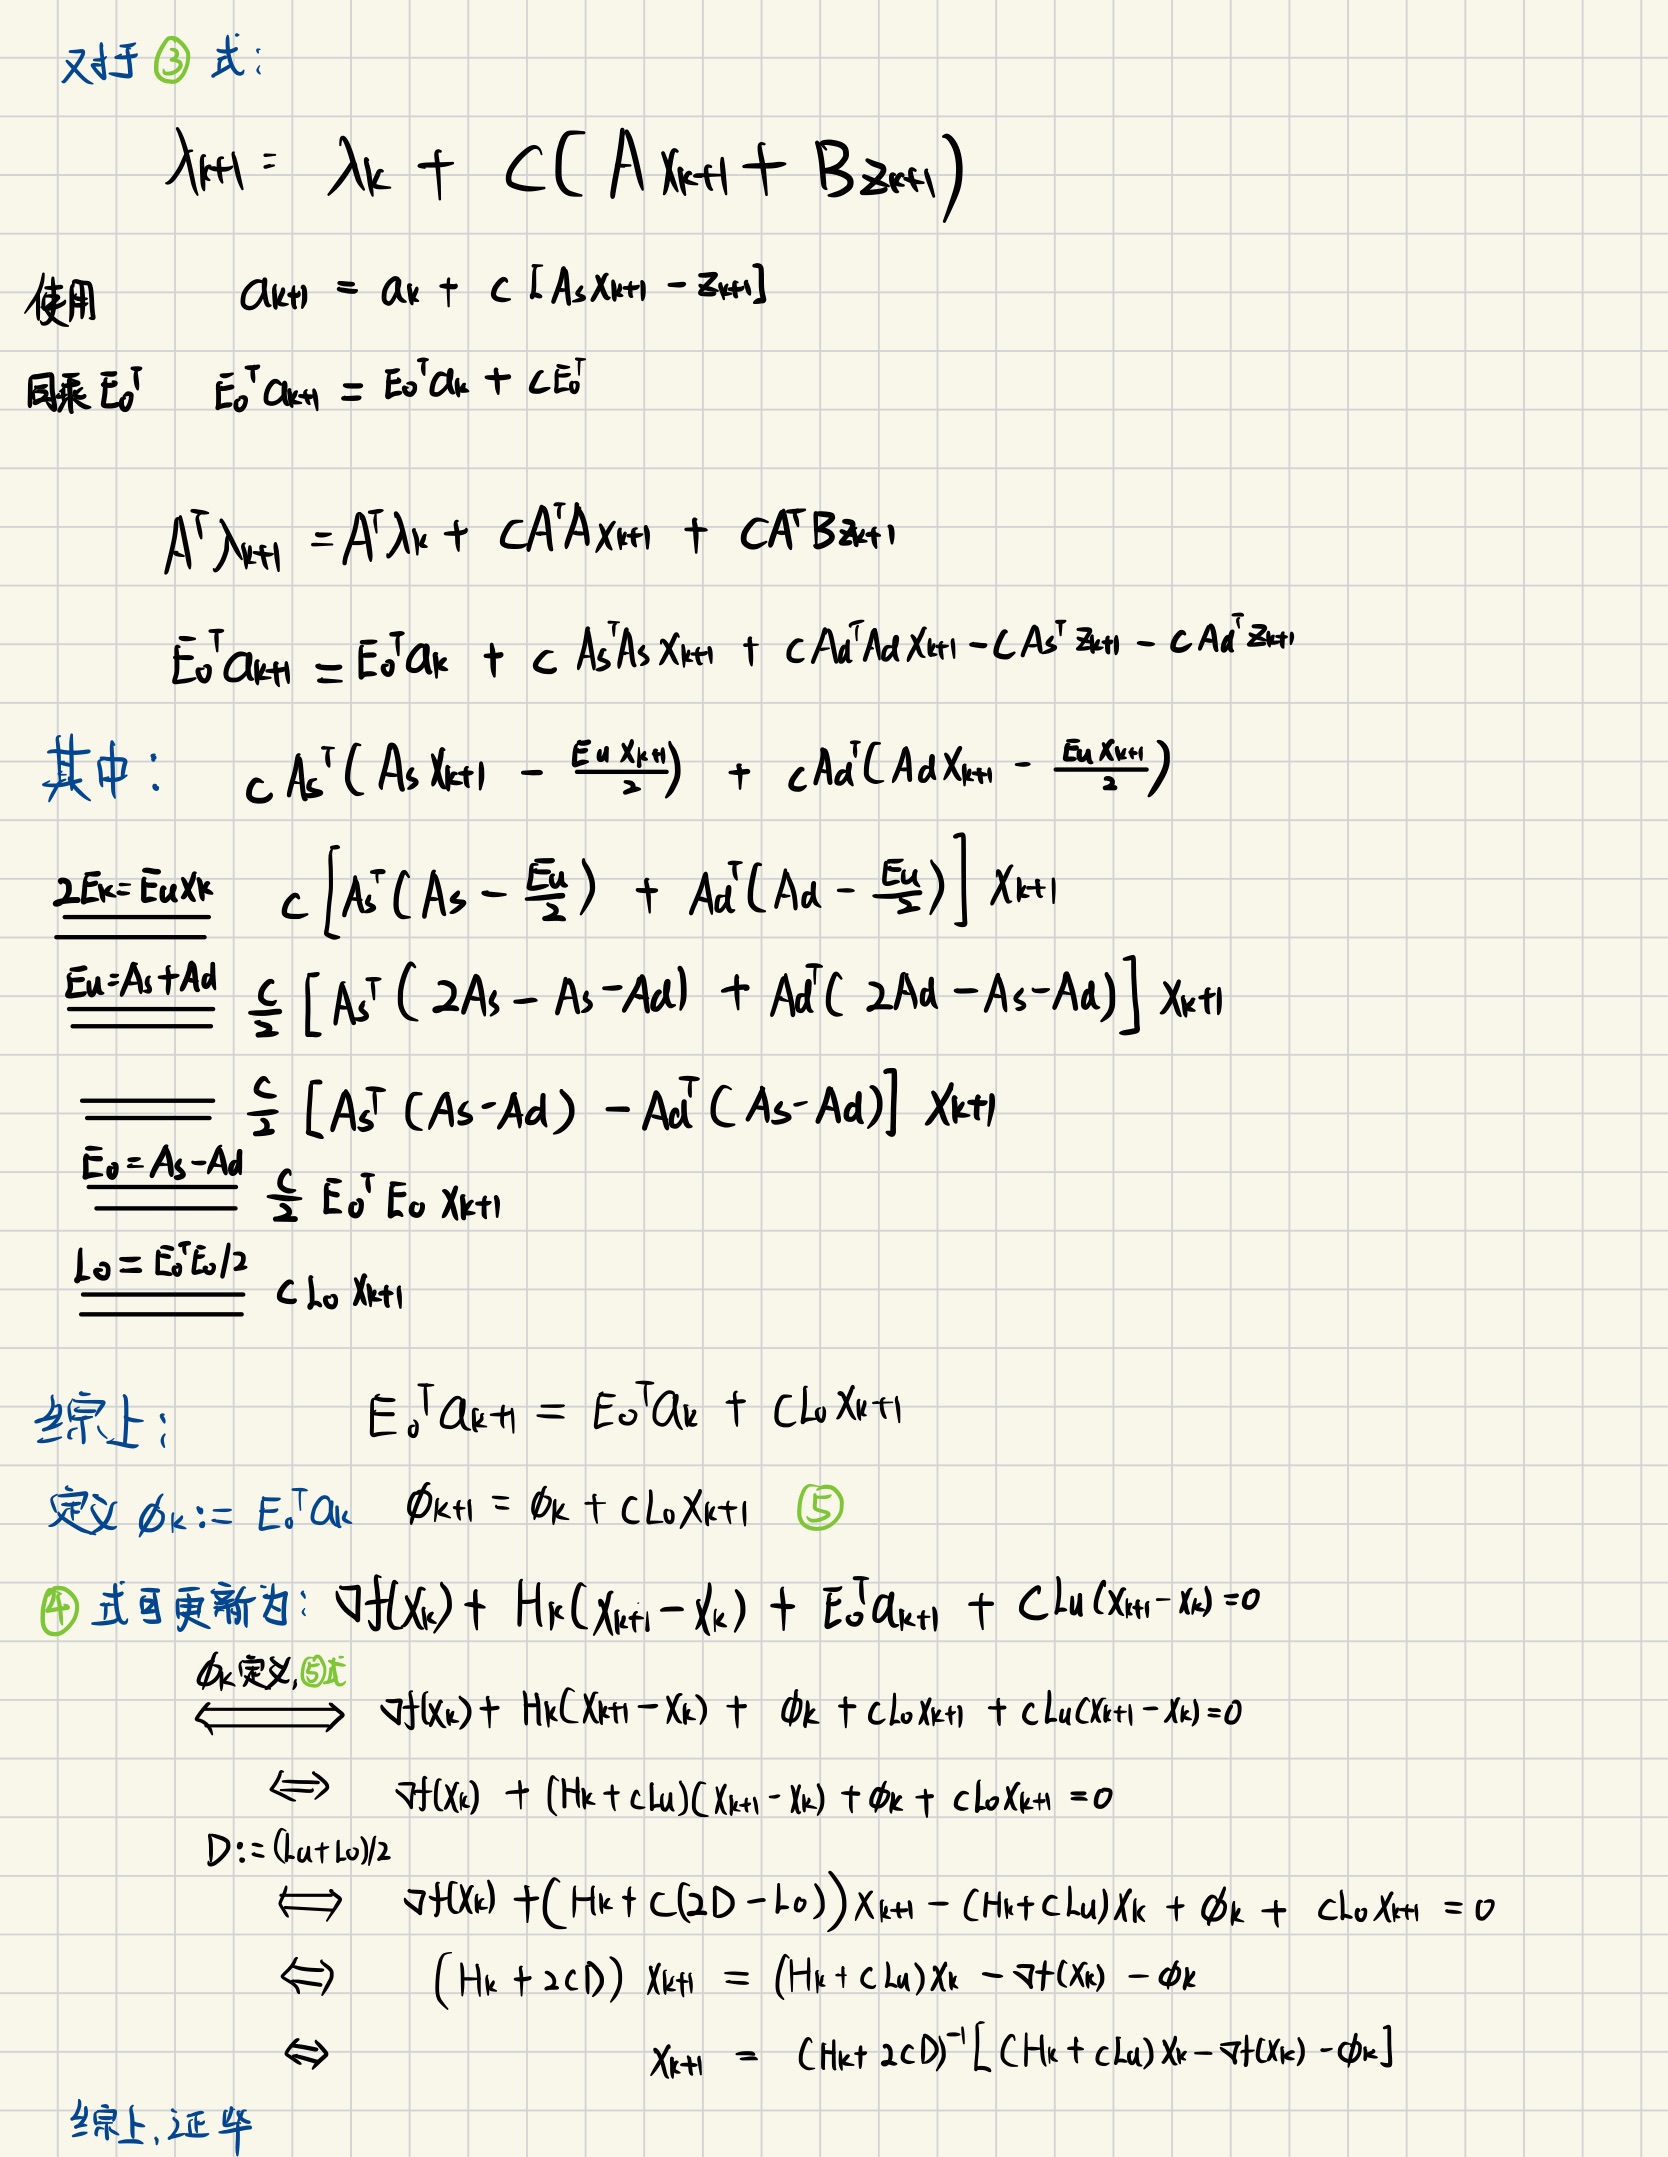 又对于 ③ 式：
λk+1 = λk + C( A Xk+1 + B Zk+1 )
使用 αk+1 = αk + c [ As Xk+1 − Zk+1 ]
同乘 E₀ᵀ E₀ᵀ αk+1 = E₀ᵀ αk + c E₀ᵀ
Aᵀ λk+1 = Aᵀ λk + cAᵀA Xk+1 + cAᵀB Zk+1
E₀ᵀ αk+1 = E₀ᵀ αk + c AsᵀAs Xk+1 + c AdᵀAd Xk+1 − c Asᵀ Zk+1 − c Adᵀ Zk+1
其中： c Asᵀ ( As Xk+1 − Eu Xk+1 / 2 ) + c Adᵀ ( Ad Xk+1 − Eu Xk+1 / 2 )
2Ek = Eu Xk c [ Asᵀ ( As − Eu/2 ) + Adᵀ ( Ad − Eu/2 ) ] Xk+1
Eu = As + Ad c/2 [ Asᵀ ( 2As − As − Ad ) + Adᵀ ( 2Ad − As − Ad ) ] Xk+1
c/2 [ Asᵀ ( As − Ad ) − Adᵀ ( As − Ad ) ] Xk+1
E₀ = As − Ad c/2 E₀ᵀ E₀ Xk+1
L₀ = E₀ᵀE₀/2 c L₀ Xk+1
综上： E₀ᵀ αk+1 = E₀ᵀ αk + c L₀ Xk+1
定义 ϕk := E₀ᵀ αk ϕk+1 = ϕk + c L₀ Xk+1 ⑤
④ 式可更新为： ∇f(Xk) + Hk( Xk+1 − Xk ) + E₀ᵀ αk+1 + c Lu ( Xk+1 − Xk ) = 0
ϕk 定义, ⑤式
⟺ ∇f(Xk) + Hk( Xk+1 − Xk ) + ϕk + c L₀ Xk+1 + c Lu( Xk+1 − Xk ) = 0
⟺ ∇f(Xk) + ( Hk + c Lu )( Xk+1 − Xk ) + ϕk + c L₀ Xk+1 = 0
D := (Lu + L₀)/2
⟺ ∇f(Xk) + ( Hk + c(2D − L₀) ) Xk+1 − ( Hk + c Lu ) Xk + ϕk + c L₀ Xk+1 = 0
⟺ ( Hk + 2cD ) Xk+1 = ( Hk + c Lu ) Xk − ∇f(Xk) − ϕk
⟺ Xk+1 = ( Hk + 2cD )⁻¹ [ ( Hk + c Lu ) Xk − ∇f(Xk) − ϕk ]
综上, 证毕